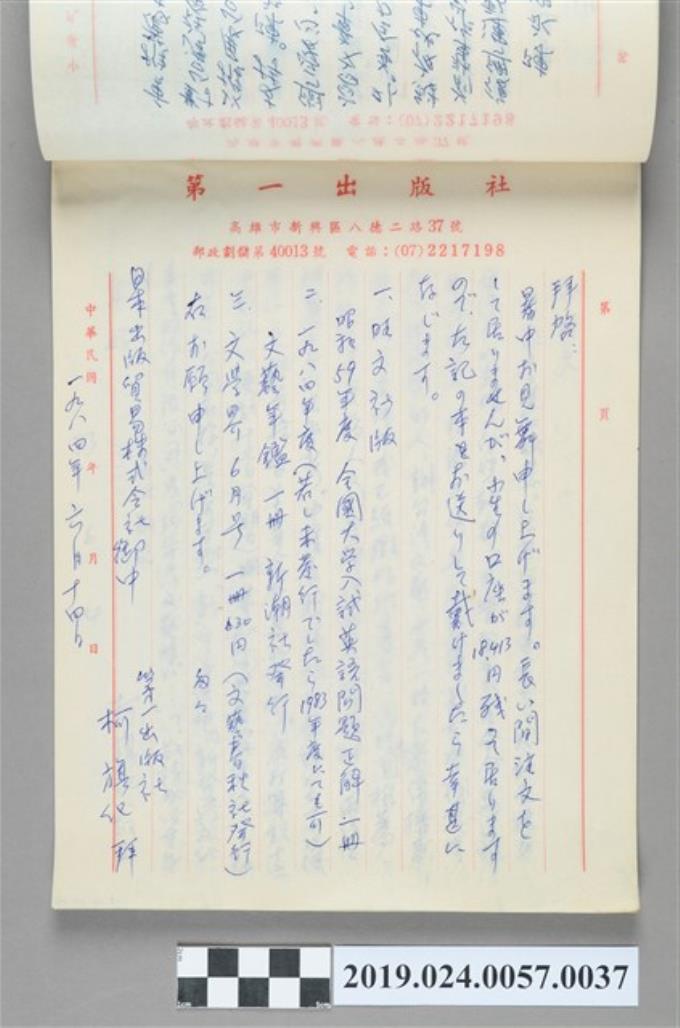 第一出版社
高雄市新興區八德二路37號
郵政劃儲第40013號 電話：(07)2217198
第 頁
拜啓：
暑中お見舞申し上げます。長い間注文を
して居りませんが、小生の口座が18,413円残って居ります
ので、左記の本をお送りして戴けましたら幸甚に
存じます。
一、旺文社版
昭和59年度全國大学入試英語問題正解一冊
二、一九八四年度（若し未發行でしたら1983年度にても可）
文藝年鑑 一冊 新潮社發行
三、文學界 6月号 一冊630円（文藝春秋社發行）
右お願申し上げます。
日本出版貿易株式会社 御中
第一出版社
柯旗化 拜
中華民國 年 月 日
一九八四年六月十四日
2019.024.0057.0037